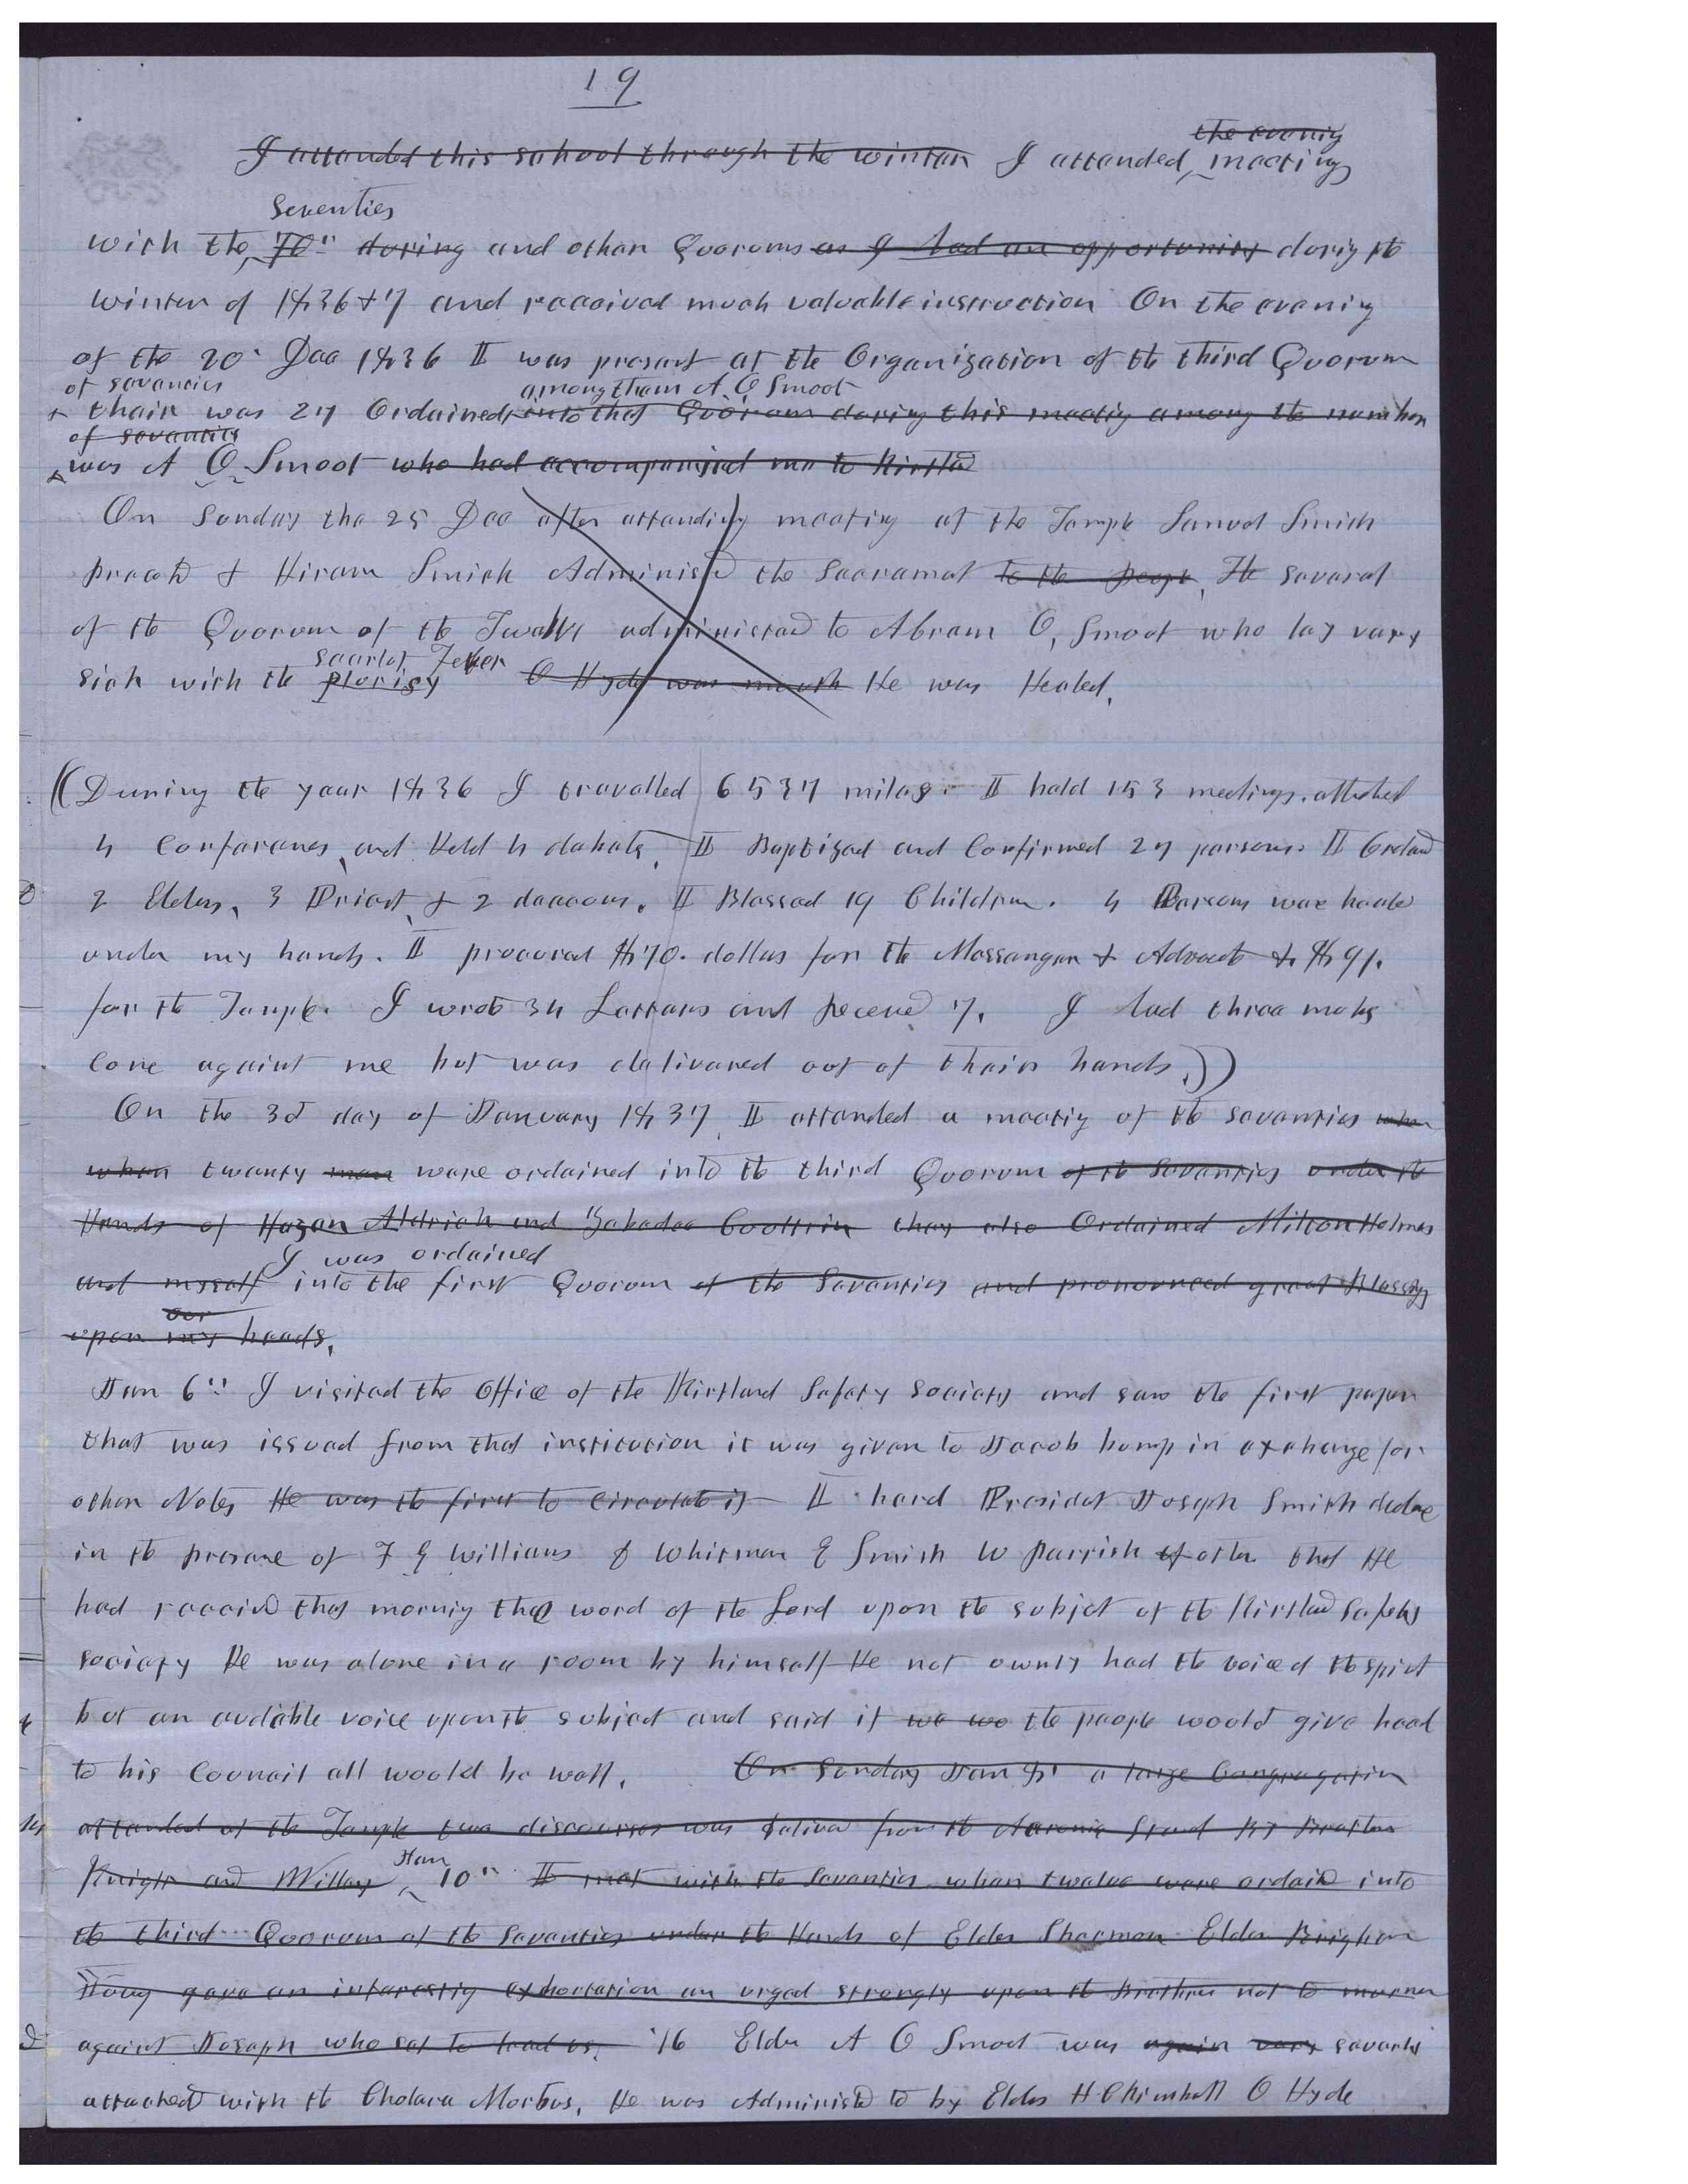 19
the evenig
I attended this school through the winter I attended meetings
Seventies
with the 70" during and other Quorums as I had an opportunity durig the
winter of 1836 & 7 and received much valuable instruction On the evenig
of the 20" Dec 1836 I was present at the Organization of the third Quorum
of seventies among them A. O Smoot
& their was 27 Ordained into that Quorum during this meetig among the number
of seventies
was A O Smoot who had accompanied me to Kirtld
On Sunday the 25 Dec after attending meeting at the Temple Samuel Smith
preachd & Hiram Smith Administd the Sacrament to the people, The several
of the Quorum of the Twelve administered to Abram O, Smoot who lay very
scarlet Fever
sick with the plurisy O Hyde was mouth He was Healed,
((During the year 1836 I travelled 6537 miles. I held 153 meetings. attended
4 Conferences, and Held 4 debats, I Baptized and Confirmed 27 persons. I Ordand
2 Elders, 3 Priest, & 2 deacons. I Blessed 19 Children. 4 Persons were heald
under my hands. I procured $70. dollars for the Messenger & Advocate & $91.
for the Temple. I wrote 34 Letters and Receved 7. I had three mobs
Come against me but was delivered out of their hands.))
On the 3d day of January 1837, I attended a meetig of the seventies when
when twenty men were ordained into the third Quorum of the Seventies under the
Hands of Hazen Aldrich and Zebadee Coultrin they also Ordained Milton Holmes
I was ordained
and myself into the first Quorum of the Seventies and pronounced great Blessigs
our
upon my heads.
Jan 6" I visited the Office of the Kirtland Safety Society and saw the first paper
that was issued from that institution it was given to Jacob bump in exchange for
other Notes He was the first to Circulate it I heard President Joseph Smith declare
in the presence of F G Williams D Whitmer S Smith W Parrish & other that He
had receivd that mornig the word of the Lord upon the subject of the Kirtland Safety
society He was alone in a room by himself He not ownly had the voice of the spirit
but an audable voice upon the subject and said if we wo the people would give heed
to his Council all would be well. On Sunday Jan 8" a large Congregation
attended at the Temple two discourses was deliverd from the Aaronic Stand By Brothers
Jan
Knight and Willey 10" I met with the Seventies when twelve were ordaind into
the third Quorum of the Seventies under the Hands of Elder Sherman Elder Brigham
Young gave an interestig exhortation an urged strongly upon the Brethren not to murmer
against Joseph who sat to lead us. 16 Elder A O Smoot was again very severely
attached with the Cholera Morbus, He was Administd to by Elders H C Kimball O Hyde